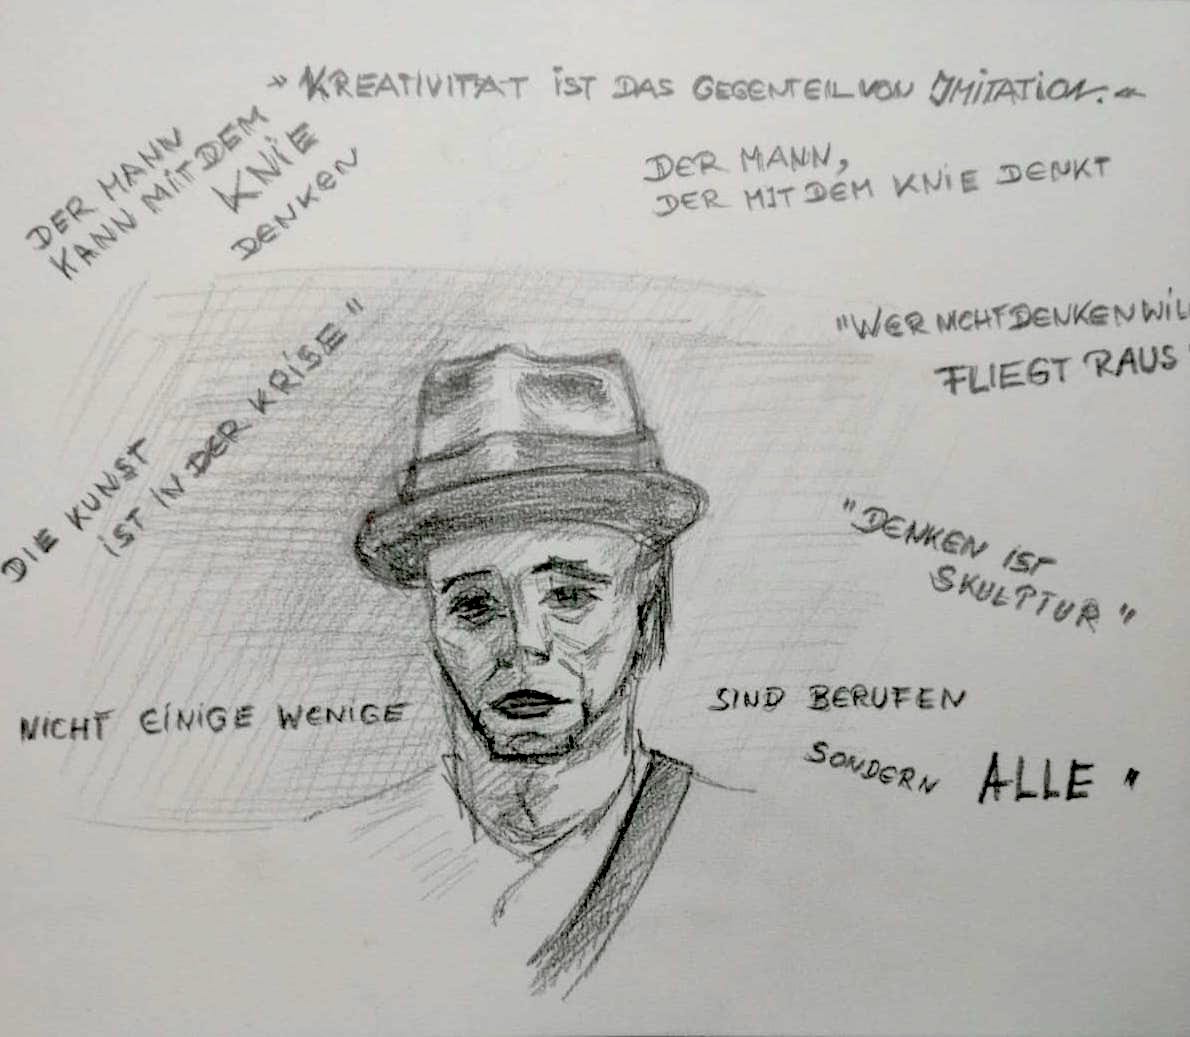 »KREATIVITÄT IST DAS GEGENTEIL VON IMITATION.«
DER MANN
KANN MIT DEM
KNIE
DENKEN
DER MANN,
DER MIT DEM KNIE DENKT
"WER NICHT DENKEN WILL
FLIEGT RAUS"
DIE KUNST
IST IN DER KRISE"
"DENKEN IST
SKULPTUR"
NICHT EINIGE WENIGE SIND BERUFEN
SONDERN ALLE"